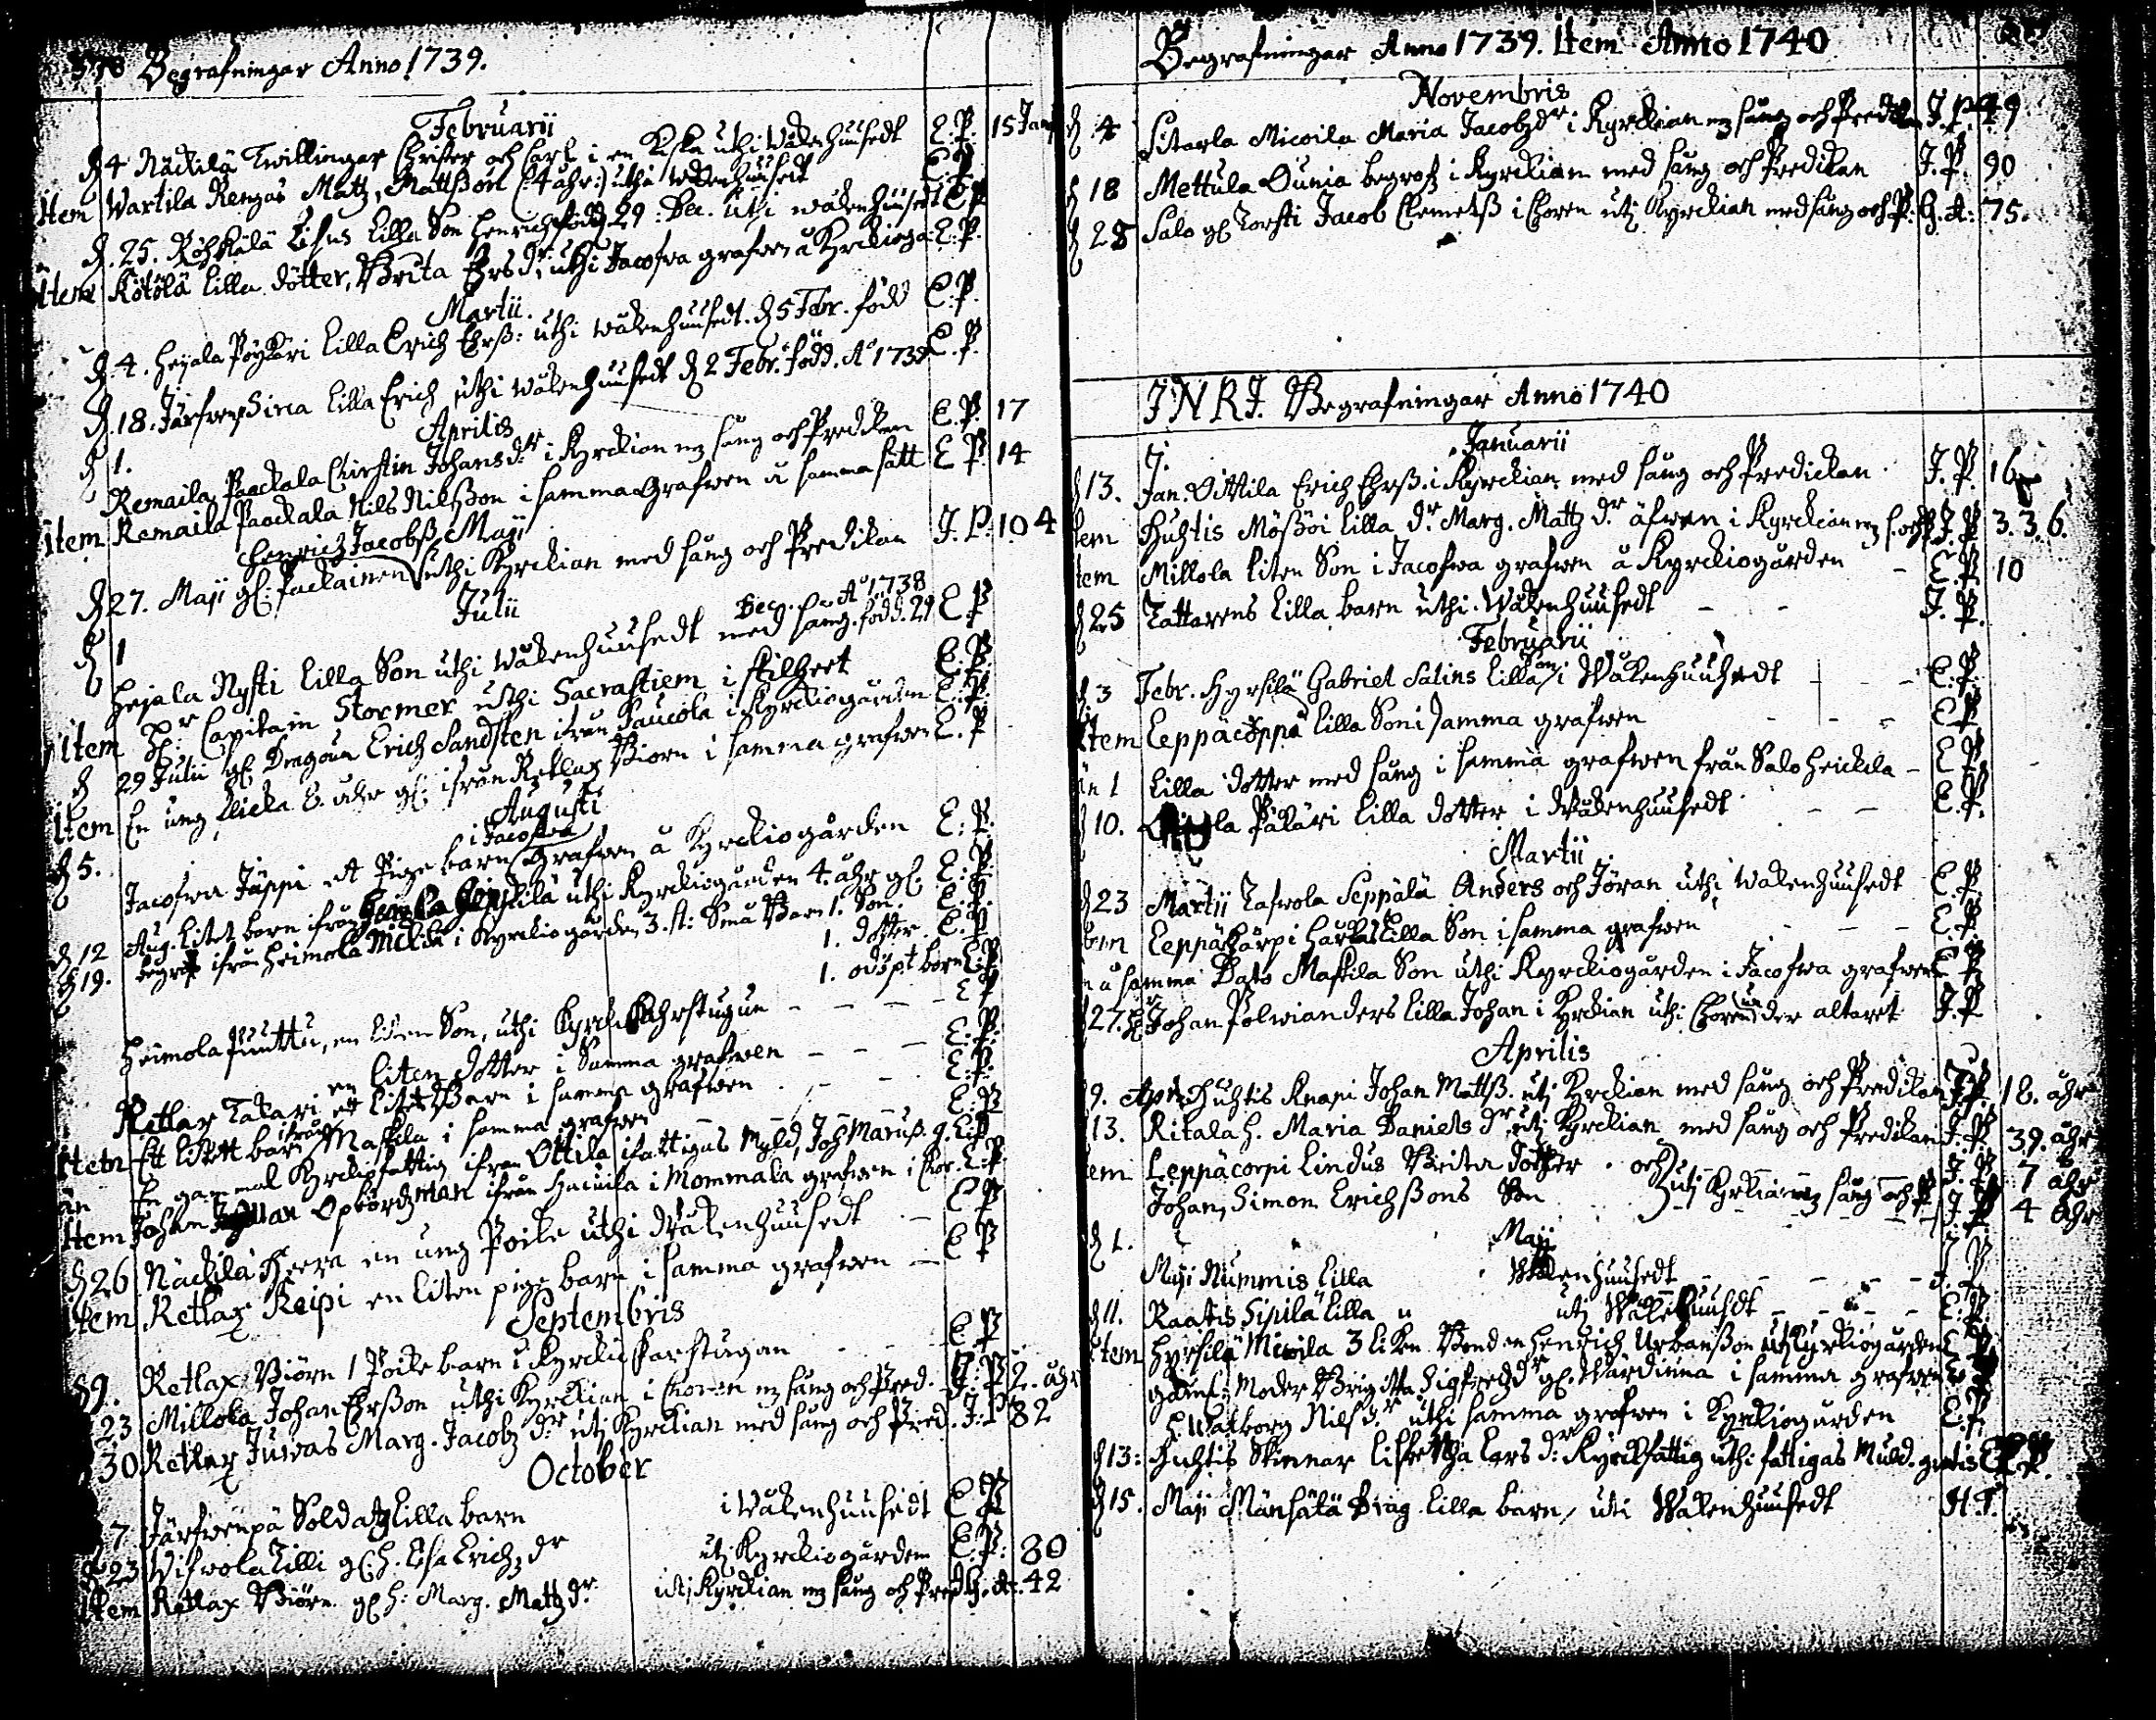 378 Begrafningar Anno 1739.
Februarii
d 4 Näckilä Twillingar Christer och Carl i en Kista uthi Wåkenhuusedt E.P. 15 Jan
Item Wartila Rengas Matz Mattßon (: 4 åhr:) uthi wåkenhuusedt E.P.
d. 25. Lilla Son Henrich född 29: Dec. uti wåkenhuusedt E.P.
Item Kötölä lilla dotter, Brita Ersdr: uthi Jacofwa grafwen å Kyrckioga: E.P.
Martii.
d. 4. Heijala Pöykäri lilla Erich Ehrß: uthi wåkenhuusedt. d 5 Febr. född E.P.
d. 18. Järfwenp Sirea lilla Erich uthi wåkenhuusedt d 2 Febr. född. Ao 1739 E.P.
Aprilis
d 1.
Remaila Paackala Chirstin Johans dr i Kyrckian mz sång och Predikan E.P. 17
Item Remaila Paackala Nils Nilßon i samma Grafwen å samma sätt E P. 14
Maji
Henrich Jacobß
d 27. Maji gl: Packainen uthi Kyrckian med sång och Predikan J. P. 104
Julii
Dec. Ao 1738
d 1
Hejala Nysti lilla Son uthi Wåkenhuusedt med sång. född. 29 E P
Item Hr Capitain Stormer uthi Sacrastiem i stilhert E.P.
d 29 Julii gl Dragoun Erich Sandsten ifrån Paucola i Kyrckiogården E.P.
Item En ung flicka 6. åhr gl: ifrån Retlax Biörn i samma grafwen E.P
Augusti
d 5.
i Jacofwa
Jacofwa Jäppi ett Pige barn Grafwen å Kyrckiogården E.P.
d 12 Aug. litet barn ifrån uthi Kyrckiogården 4. åhr gl E.P.
d 19. begrof ifrån Heimola Mickilä i Kyrckiogården 3. st: Små Barn 1. Son. E.P.
1. dotter E.P
1. odöpt barn E.P
Heimola Puuttu, en liten Son, uthi Kyrckskahrstugun - - - E P
Retlax Takari en liten dotter i Samma grafwen - - - E.P.
ett litet Barn i samma grafwen - - E.P.
Item Ett litet barn ifrån Maskila i samma grafwen E.P
En gammal Kyrckofattig ifrån Ottila ifattigas Myld, Joh Maruß. g. E.P
Item Johan Opbördzman ifrån Hacuila i Mommala grafwen i Chor. E.P.
d 26 Näckilä Heera en ung Poike uthi Wåkenhuusedt - E P
Item Retlax Reipi en liten pige barn i samma grafwen - E P
Septembris
d 9. Retlax Biörn 1 Poike barn i Kyrckio skarstugan E P
23 Millola Johan Ehrßon uthi Kyrckian i Choren mz sång och Pred. J. P 2. åhr
30 Retlax Juwas Marg. Jacobz dr utj Kyrckian med sång och Pred. J. P 82
October
7 Järfwenpä Soldatz lilla barn i Wåkenhuusedt E P
d 23 Wifwola Lilli gl. h. Lisa Erichz dr utj Kyrckiogården E. P: 80
Item Retlax Biörn gl h: Marg. Matz dr. utj Kyrckian mz sång och Pred G. A: 42
Begrafningar Anno 1739. Item Anno 1740
Novembris
d 4 Sitarla Micoila Maria Jacobz dr i Kyrckian mz sång och Predikan J. P. 49
d 18 Mettula Ounia begrof i Kyrckian med sång och Predikan J. P. 90
d 28 Salo gl Torsti Jacob Clemetß i Choren utj Kyrckian med sång och P: G. A: 75.
J N R J. Begrafningar Anno 1740
Januarii
d 13. Jan. Oittila Erich Ehrß. i Kyrckian med sång och Predickan. J. P. 16
Item Huhtis Mößöi lilla dr Marg. Mattz dr äfwen i Kyrckian mz s. och P J. P 3.3.6.
Item Millola liten Son i Jacofwa grafwen å Kyrckiogården - E.P. 10
d 25 Tattarens lilla barn uthi Wåkenhuusedt - - J. P.
Februarii
d. 3 Febr. Hyrsilä Gabriel Salins lilla Son i Wåkenhuusedt - - E.P.
Item Leppäcoppa lilla Son i samma grafwen - - - E P
än 1 lilla dotter med sång i samma grafwen från Salo Heickila - E P
d 10. Päläri lilla dotter i Wåkenhuusedt - - E. P.
Martii
d 23 Martii Tafwola Seppälä Anders och Jöran uthi wåkenhuusedt E.P.
Item Leppäkarpi Harkas lilla Son i samma grafwen - - - E.P
å samma Dato Maskila Son uthi Kyrckiogården i Jacofwa grafwen E P.
d 27. Hr Johan Polwianders lilla Johan i Kyrckian uthi Choren under altaret J. P
Aprilis
d 9. Apr: Huhtis Knapi Johan Mattß. utj Kyrckian med sång och Predikan J.P. 18. åhr
d 13. Ritala h. Maria Daniels dr utj Kyrckian med sång och Predikan J. P. 39. åhr
Item Leppäcorpi Lindus Brita dotter och J. P 7 åhr
Johan, Simon Erichßons Son utj Kyrkian mz sång och P J. P 4 åhr
Maji
d 1. Maji Nummis lilla Wåkenhuusedt - - - - J. P
d 11. Raatis Sipilä lilla utj Wåkenhuusedt - - - - E. P.
Item Hyrsilä Micoila 3 liken Bonden Henrich Urbanßon utj Kyrckiogården E P
Gaml: Moder Brigitta Sigfredz dr gl. Wardinna i samma grafwen E P
h. Walborg Nils dr uthi samma grafwen i Kyrckiogården E.P.
d 13: Huhtis Skinnar Lisbetha Lars dr: Kyrckfattig uthi fattigas Muld. gratis E.P.
d 15. Maji Mänsälä Drag lilla barn, uti Wåkenhuusedt H. T.